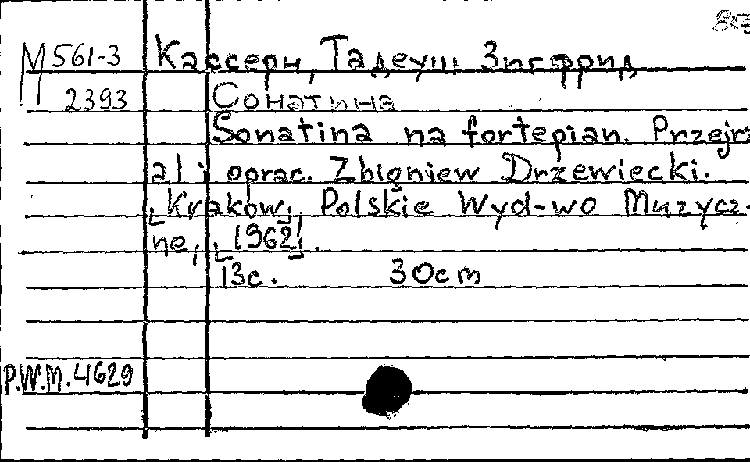 М 561-3 Кассерн, Тадеуш Зигфрид
2393 Сонатина
Sonatina na fortepian. Przejrz
ał i oprac. Zbigniew Drzewiecki.
[Kraków], Polskie Wyd-wo Muzycz-
ne, [1962].
13с. 30cm
P.W.M. 4629